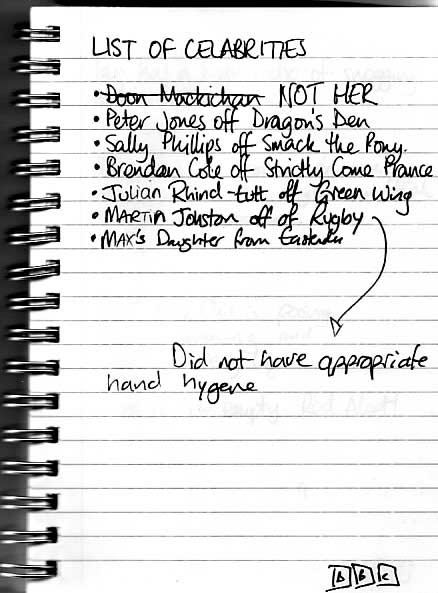 LIST OF CELABRITIES
• Doon Mackichan NOT HER
• Peter Jones off Dragon's Den
• Sally Phillips off Smack the Pony.
• Brendan Cole off Strictly Come Prance
• Julian Rhind-tutt off Green Wing
• MARTIN Johston off of Rugby
• MAX's Daughter from Eastenders
Did not have appropriate
hand hygene
BBC